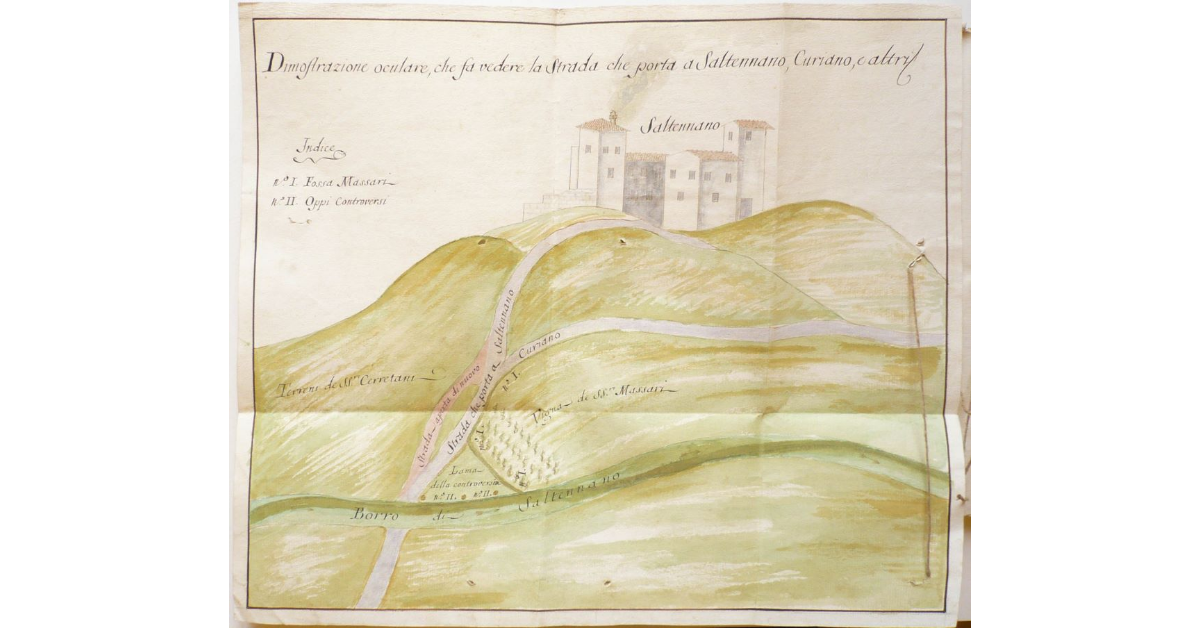 Dimostrazione oculare, che fa vedere la Strada che porta a Saltennano, Curiano, e altri
Saltennano
Indice
n.º I. Fossa Massari
n.º II. Oppi Controversi
Strada che porta a Saltennano
Curiano
Terreni de SS.ri Cerretani
Strada aperta di nuovo
n.º I.
Vigna de SS.ri Massari
n.º I.
Lama
della controversia
n.º II. n.º II.
Borro di Saltennano